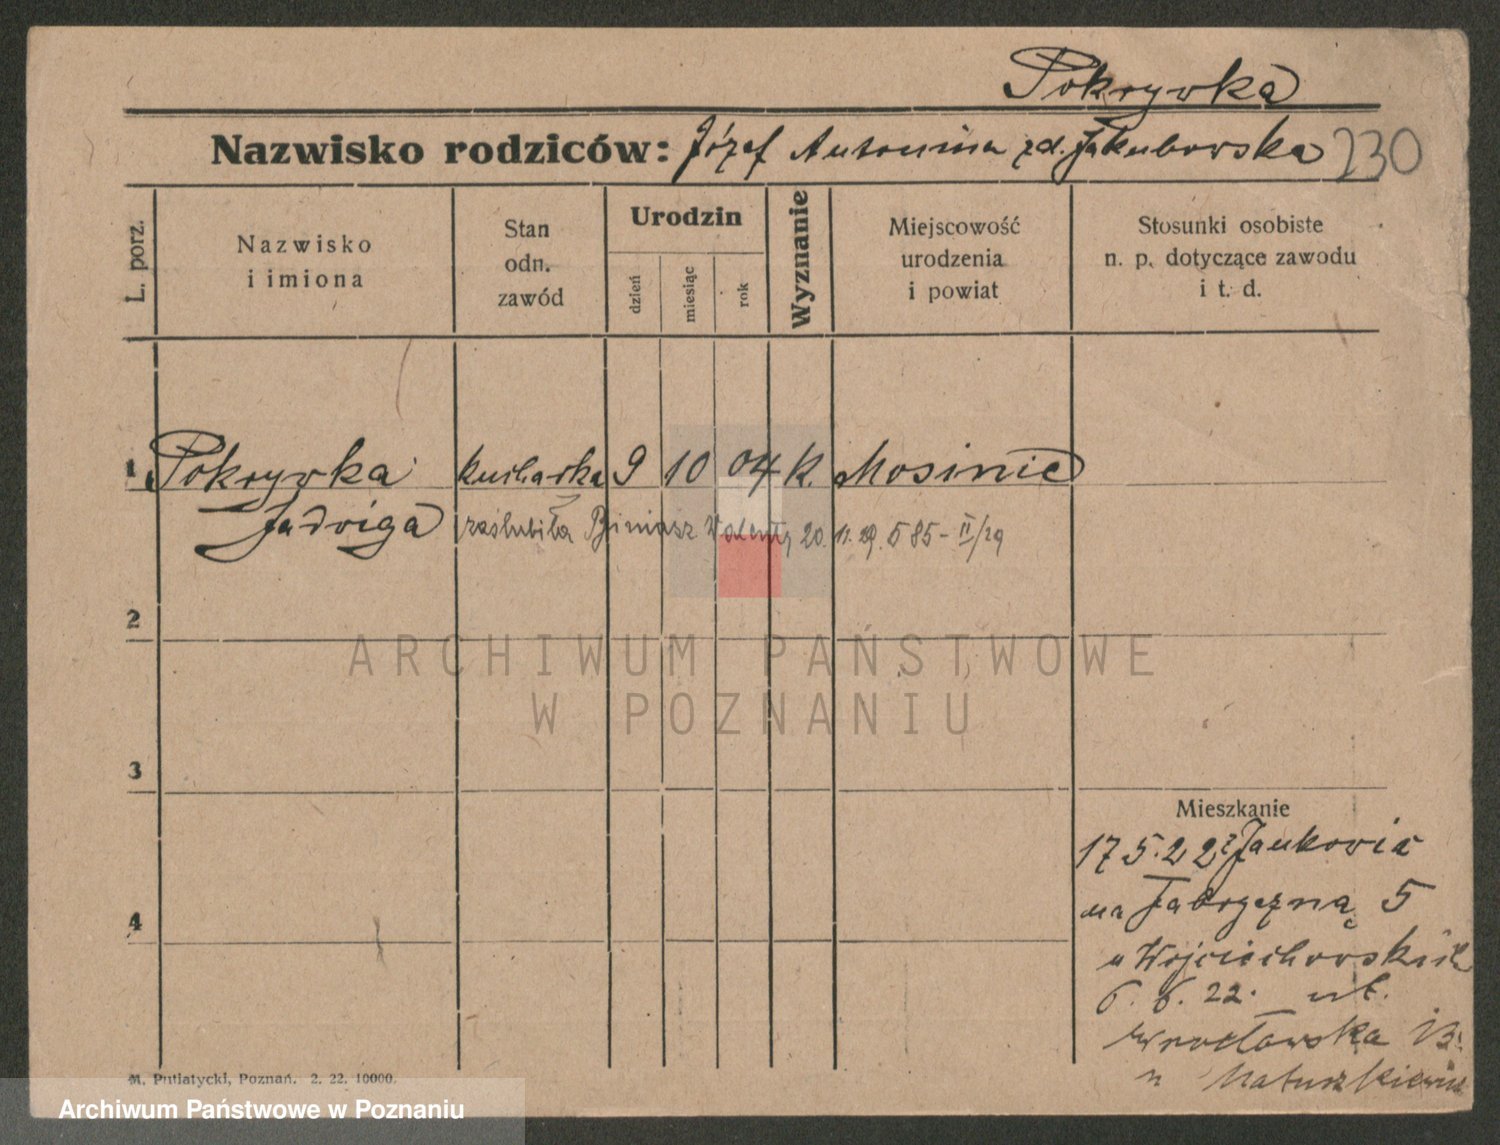 Pokrywka
Nazwisko rodziców: Józef Antonina zd. Jakubowska 230
L. porz.
Nazwisko
i imiona
Stan
odn.
zawód
Urodzin
dzień
miesiąc
rok
Wyznanie
Miejscowość
urodzenia
i powiat
Stosunki osobiste
n. p. dotyczące zawodu
i t. d.
1 Pokrywka kucharka 9 10 04 K. Mosinie
Jadwiga zaślubiła Biniasz Walenty 20. 11. 29. 585 - II/29
2
3
4
Mieszkanie
17 5. 22 z Jankowic
na Fabryczną 5
u Wojciechowskich
6. 6. 22. ul.
Wrocławska 13.
u Matuszkiewicz
M. Putiatycki, Poznań. 2. 22. 10000.
ARCHIWUM PAŃSTWOWE
W POZNANIU
Archiwum Państwowe w Poznaniu